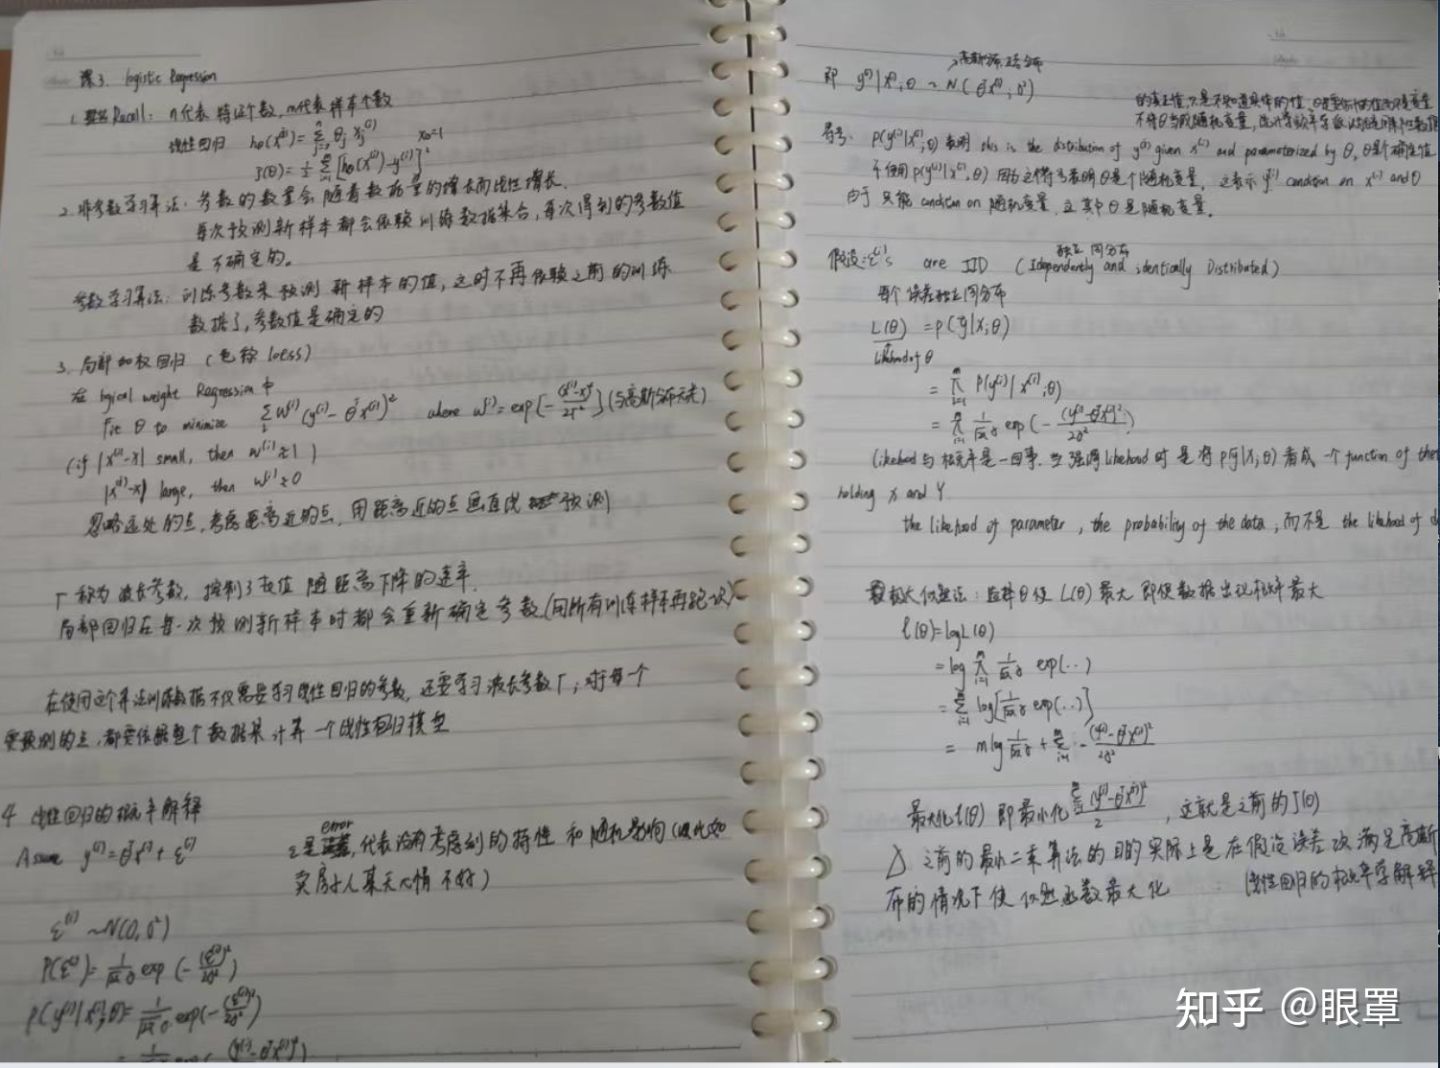 课3. logistic Regression
1. Recall: n代表特征个数, m代表样本个数
线性回归 hθ(x⁽ⁱ⁾)=Σⁿⱼ₌₀ θⱼ xⱼ⁽ⁱ⁾ x₀=1
J(θ)=½ Σᵐᵢ₌₁ [hθ(x⁽ⁱ⁾)-y⁽ⁱ⁾]²
2. 非参数学习算法: 参数的数量会随着数据量的增长而线性增长.
每次预测新样本都会依赖训练数据集合, 每次得到的参数值
是不确定的。
参数学习算法: 训练参数来预测新样本的值, 这时不再依赖之前的训练
数据了, 参数值是确定的
3. 局部加权回归 (也称loess)
在 logical weight Regression 中
Fit θ to minimize Σᵢ w⁽ⁱ⁾(y⁽ⁱ⁾-θᵀx⁽ⁱ⁾)² where w⁽ⁱ⁾=exp{-(x⁽ⁱ⁾-x)²/2τ²}(与高斯分布无关)
(if |x⁽ⁱ⁾-x| small, then w⁽ⁱ⁾≈1)
|x⁽ⁱ⁾-x| large, then w⁽ⁱ⁾≈0
忽略远处的点, 考虑距离近的点, 用距离近的点画直线 预测
τ称为波长参数, 控制了权值随距离下降的速率.
局部回归在每一次预测新样本时都会重新确定参数(向所有训练样本再跑一次)
在使用这个算法训练数据不仅需要学习线性回归的参数, 还要学习波长参数τ, 对每一个
要预测的点, 都要依据整个数据集计算一个线性回归模型
4 线性回归的概率解释
Assume y⁽ⁱ⁾=θᵀx⁽ⁱ⁾+ε⁽ⁱ⁾
error
ε是 , 代表没有考虑到的特性和随机影响(
卖房人某天心情不好)
ε⁽ⁱ⁾~N(0,σ²)
P(ε⁽ⁱ⁾)=1/√2π σ exp(-(ε⁽ⁱ⁾)²/2σ²)
P(y⁽ⁱ⁾|x⁽ⁱ⁾;θ)=1/√2π σ exp(-(ε⁽ⁱ⁾)²/2σ²)
即 y⁽ⁱ⁾|x⁽ⁱ⁾;θ ~ N(θᵀx⁽ⁱ⁾,σ²)
符号: P(y⁽ⁱ⁾|x⁽ⁱ⁾;θ) 表明 this is the distribution of y⁽ⁱ⁾ given x⁽ⁱ⁾ and parameterized by θ, θ是个确定值
不使用P(y⁽ⁱ⁾|x⁽ⁱ⁾,θ) 因为这符号表明θ是个随机变量, 这表示 y⁽ⁱ⁾ condition on x⁽ⁱ⁾ and θ
由于只能 condition on 随机变量, 其中θ是随机变量.
独立同分布
假设: ε⁽ⁱ⁾'s are IID (Independently and identically Distributed)
每个误差独立同分布
L(θ) =P(y|X;θ)
Likehood of θ
=Πᵐᵢ₌₁ P(y⁽ⁱ⁾|x⁽ⁱ⁾;θ)
=Πᵐᵢ₌₁ 1/√2π σ exp(-(y⁽ⁱ⁾-θᵀx⁽ⁱ⁾)²/2σ²)
likehood与概率是一回事. 当强调likehood时是将P(y|X;θ)看成一个function of
holding X and Y
the likehood of parameter, the probability of the data, 而不是 the likehood of
极大似然法: 选择θ使L(θ)最大 即使数据出现概率最大
ℓ(θ)=logL(θ)
=log Πᵐᵢ₌₁ 1/√2π σ exp(..)
=Σᵐᵢ₌₁ log[1/√2π σ exp(..)]
= mlog 1/√2π σ + Σᵐᵢ₌₁ -(y⁽ⁱ⁾-θᵀx⁽ⁱ⁾)²/2σ²
最大化ℓ(θ) 即最小化 Σᵐᵢ₌₁ (y⁽ⁱ⁾-θᵀx⁽ⁱ⁾)²/2 , 这就是之前的J(θ)
△ 之前的最小二乘算法的目的实际上是在假设误差项满足高斯
布的情况下使似然函数最大化 (线性回归的概率学解释
知乎 @眼罩